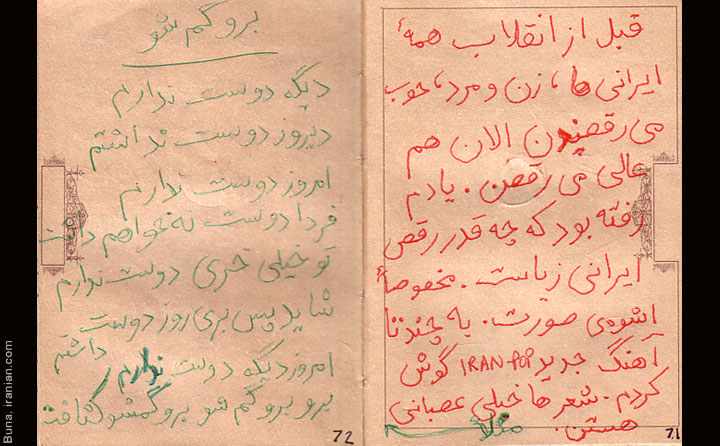 قبل از انقلاب همهٔ
ایرانی ها، زن و مرد، خوب
می رقصیدن الان هم
عالی می رقصن. یادم
رفته بود که چه قدر رقص
ایرانی زیباست. مخصوصاً
صورت. به چند تا
آهنگ جدید IRAN-POP گوش
کردم. شعرها خیلی عصبانی
هستن. مثلاً
71
برو گم شو
دیگه دوست ندارم
دیروز دوست نداشتم
امروز دوست ندارم
فردا دوست نه نخواهم داشت
تو خیلی خری دوست ندارم
شاید پس پری روز دوست
داشتم
امروز دیگه دوست ندارم
برو برو گم شو برو گمشو کثافت
72
Buna, iranian.com